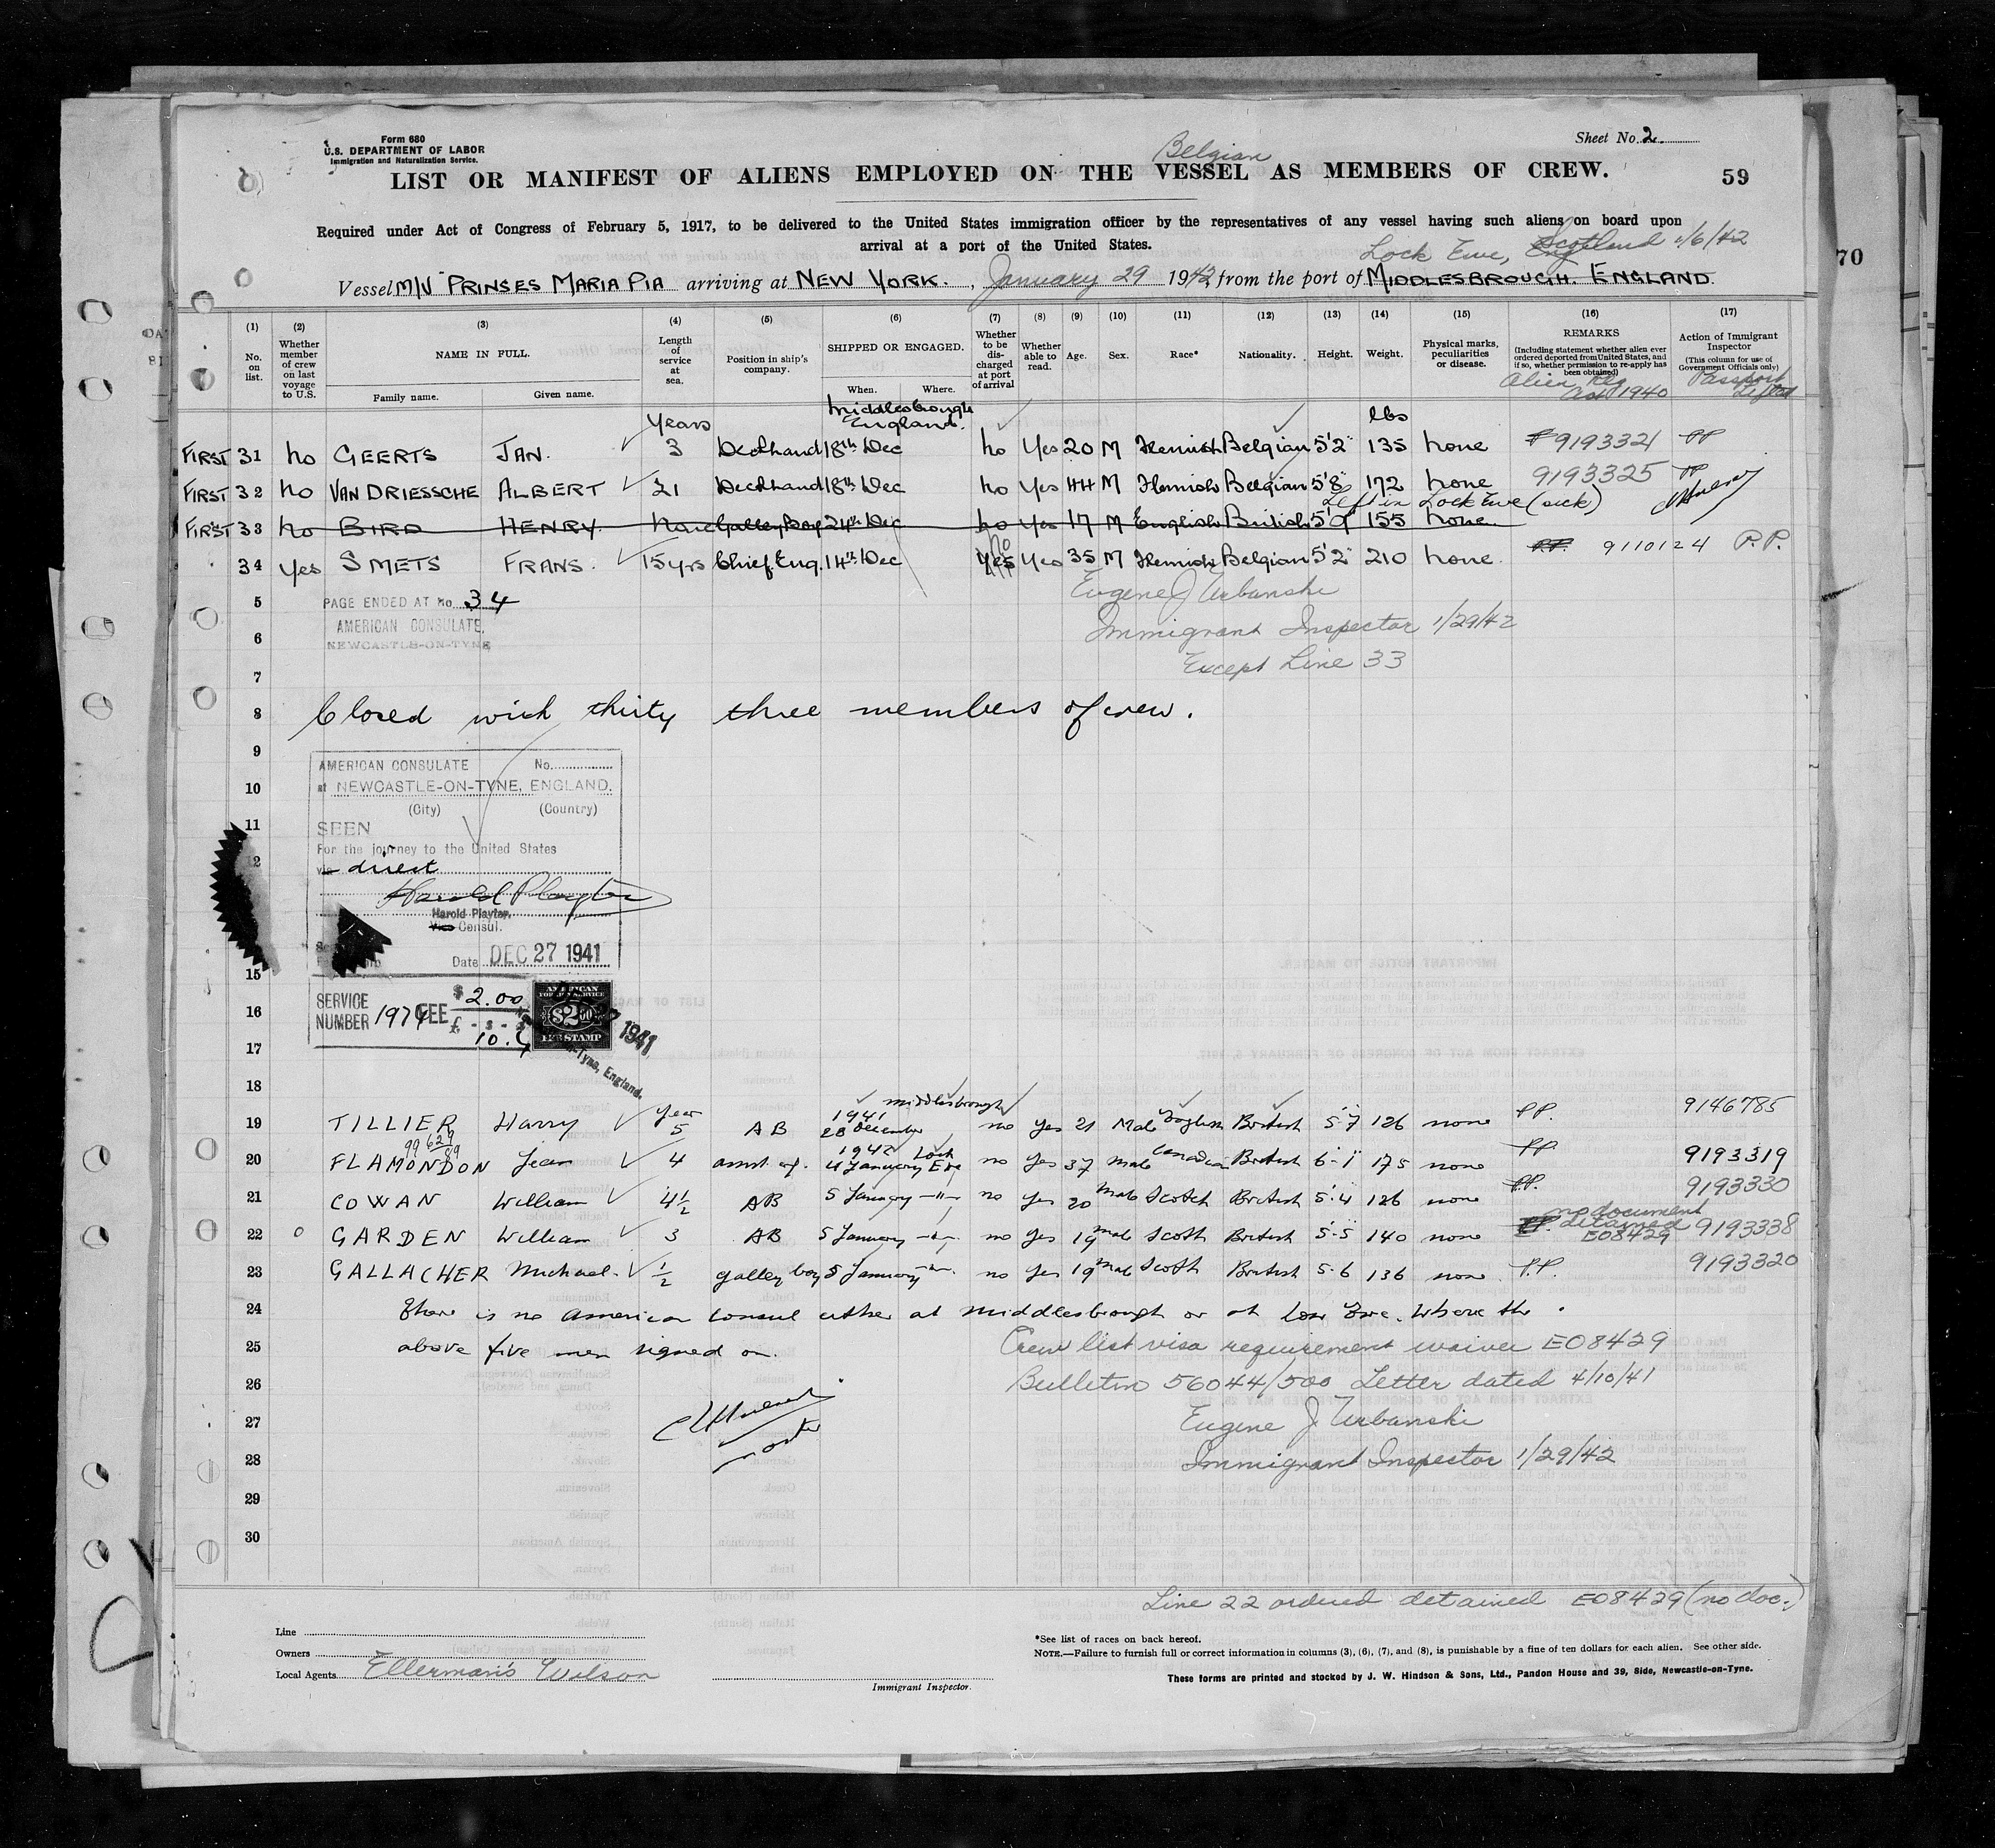 Form 680
U.S. DEPARTMENT OF LABOR
Immigration and Naturalization Service.
Sheet No. 2.
Belgian
LIST OR MANIFEST OF ALIENS EMPLOYED ON THE VESSEL AS MEMBERS OF CREW.
59
70
Required under Act of Congress of February 5, 1917, to be delivered to the United States immigration officer by the representatives of any vessel having such aliens on board upon
arrival at a port of the United States.
Lock Ewe, Eng Scotland 1/6/42
Vessel M/V PRINSES MARIA PIA arriving at NEW YORK., January 29 1942, from the port of MIDDLESBROUGH. ENGLAND.
(1) (2) (3) (4) (5) (6) (7) (8) (9) (10) (11) (12) (13) (14) (15) (16) (17)
No. on list.
Whether member of crew on last voyage to U.S.
NAME IN FULL.
Family name. Given name.
Length of service at sea.
Position in ship's company.
SHIPPED OR ENGAGED.
When. Where.
Whether to be discharged at port of arrival
Whether able to read.
Age. Sex. Race* Nationality. Height. Weight.
Physical marks, peculiarities or disease.
REMARKS
(Including statement whether alien ever ordered deported from United States, and if so, whether permission to re-apply has been obtained)
Alien Reg Act 1940
Action of Immigrant Inspector
(This column for use of Government Officials only)
Passport Lifted
Years Middlesbrough England. lbs
FIRST 31 no GEERTS JAN. 3 Deckhand 18th Dec no Yes 20 M Flemish Belgian 5'2" 135 none 9193321 PP
FIRST 32 no VAN DRIESSCHE ALBERT 21 Deckhand 18th Dec no Yes 44 M Flemish Belgian 5'8" 172 none 9193325 PP
Left in Lock Ewe (sick)
FIRST 33 no BIRD HENRY. none Galley Boy 24th Dec no Yes 17 M English British 5'9" 155 none.
no
34 yes SMETS FRANS. 15 yrs Chief. Eng. 14th Dec Yes Yes 35 M Flemish Belgian 5'2" 210 none. P.P. 9110124 P.P.
5 PAGE ENDED AT no. 34
Eugene J Urbanski
AMERICAN CONSULATE,
6 Immigrant Inspector 1/29/42
NEWCASTLE-ON-TYNE
Except Line 33
7
8 Closed with thirty three members of crew.
9
AMERICAN CONSULATE No.
10 at NEWCASTLE-ON-TYNE, ENGLAND.
(City) (Country)
11 SEEN
For the journey to the United States
12 via direct
Harold Playter
Harold Playter.
Vice Consul.
Date DEC 27 1941
15
SERVICE NUMBER 1974 FEE $2.00
£ - s - d
10.
AMERICAN FOREIGN SERVICE
$2.00
FEE STAMP
1941
Tyne, England.
16
17
18
Year 1941 Middlesbrough
19 TILLIER Harry 5 AB 28 December no yes 21 Male English British 5'7" 126 none P.P. 9146785
1942 Lock Ewe
20 FLAMONDON Jean 4 4 January no yes 37 male Canadian British 6'-1" 175 none PP 9193319
21 COWAN William 4½ AB 5 January -"- no yes 20 male Scotch British 5'.4" 126 none P.P. 9193330
no document
detained
22 GARDEN William 3 AB 5 January -"- no yes 19 male Scotch British 5'.5" 140 none P.P. E08429 9193338
23 GALLACHER Michael. ½ galley boy 5 January -"- no yes 19 male Scotch British 5.6 136 none P.P. 9193320
24 There is no American consul either at Middlesbrough or at Loch Ewe. where the
25 above five men signed on.
Crew list visa requirement waiver E08429
26 Bulletin 56044/500 Letter dated 4/10/41
27 Eugene J Urbanski
master
28 Immigrant Inspector 1/29/42
29
30
Line 22 ordered detained E08429 (no doc.)
Line
Owners
Local Agents Ellerman's Wilson
Immigrant Inspector.
*See list of races on back hereof.
NOTE.—Failure to furnish full or correct information in columns (3), (6), (7), and (8), is punishable by a fine of ten dollars for each alien. See other side.
These forms are printed and stocked by J. W. Hindson & Sons, Ltd., Pandon House and 39, Side, Newcastle-on-Tyne.